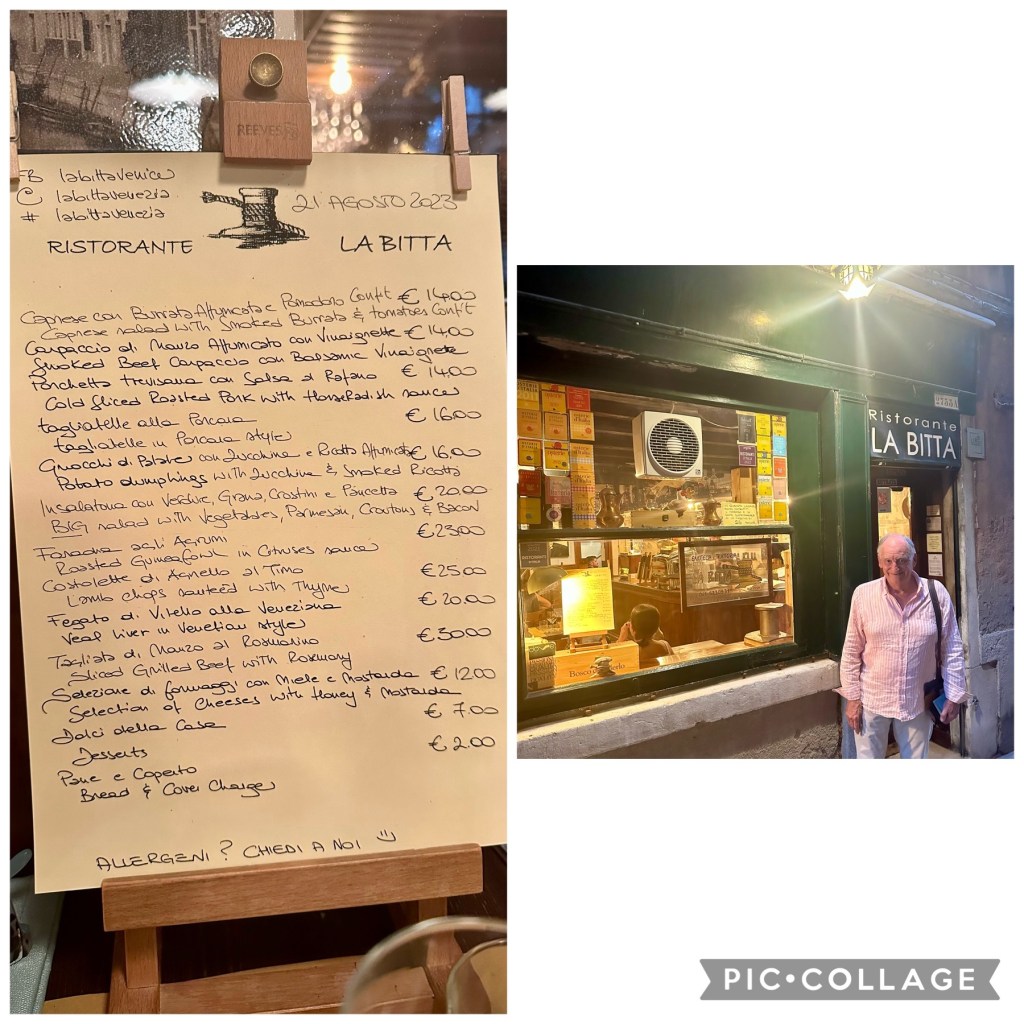 REEVES
FB labittavenice
C labittavenezia
# labittavenezia
21 AGOSTO 2023
RISTORANTE LA BITTA
Caprese con Burrata Affumicata e Pomodoro Confit € 14,00
Caprese salad with Smoked Burrata & tomatoes Confit
Carpaccio di Manzo Affumicato con Vinaigrette € 14,00
Smoked Beef Carpaccio con Balsamic Vinaigrette
Porchetta trevisana con Salsa di Rafano € 14,00
Cold Sliced Roasted Pork with Horseradish sauce
tagliatelle alla € 16,00
tagliatelle in style
Gnocchi di Patate con Zucchine e Ricotta Affumicata € 16,00
Potato dumplings with Zucchine & Smoked Ricotta
Insalatona con Verdure, Grana, Crostini e Pancetta € 20,00
BIG salad with Vegetables, Parmesan, Croutons & Bacon
Faraona agli Agrumi € 25,00
Roasted Guineafowl in Citruses sauce
Costolette di Agnello al Timo € 25,00
Lamb chops sauteed with Thyme
Fegato di Vitello alla Veneziana € 20,00
Veal liver in Venetian style
Tagliata di Manzo al Rosmarino € 30,00
Sliced Grilled Beef with Rosmary
Selezione di formaggi con Miele e Mostarda € 12,00
Selection of Cheeses with Honey & Mostarda
Dolci della Casa € 7,00
Desserts
Pane e Coperto € 2,00
Bread & Cover Charge
ALLERGENI? CHIEDI A NOI
Ristorante
LA BITTA
PIC•COLLAGE